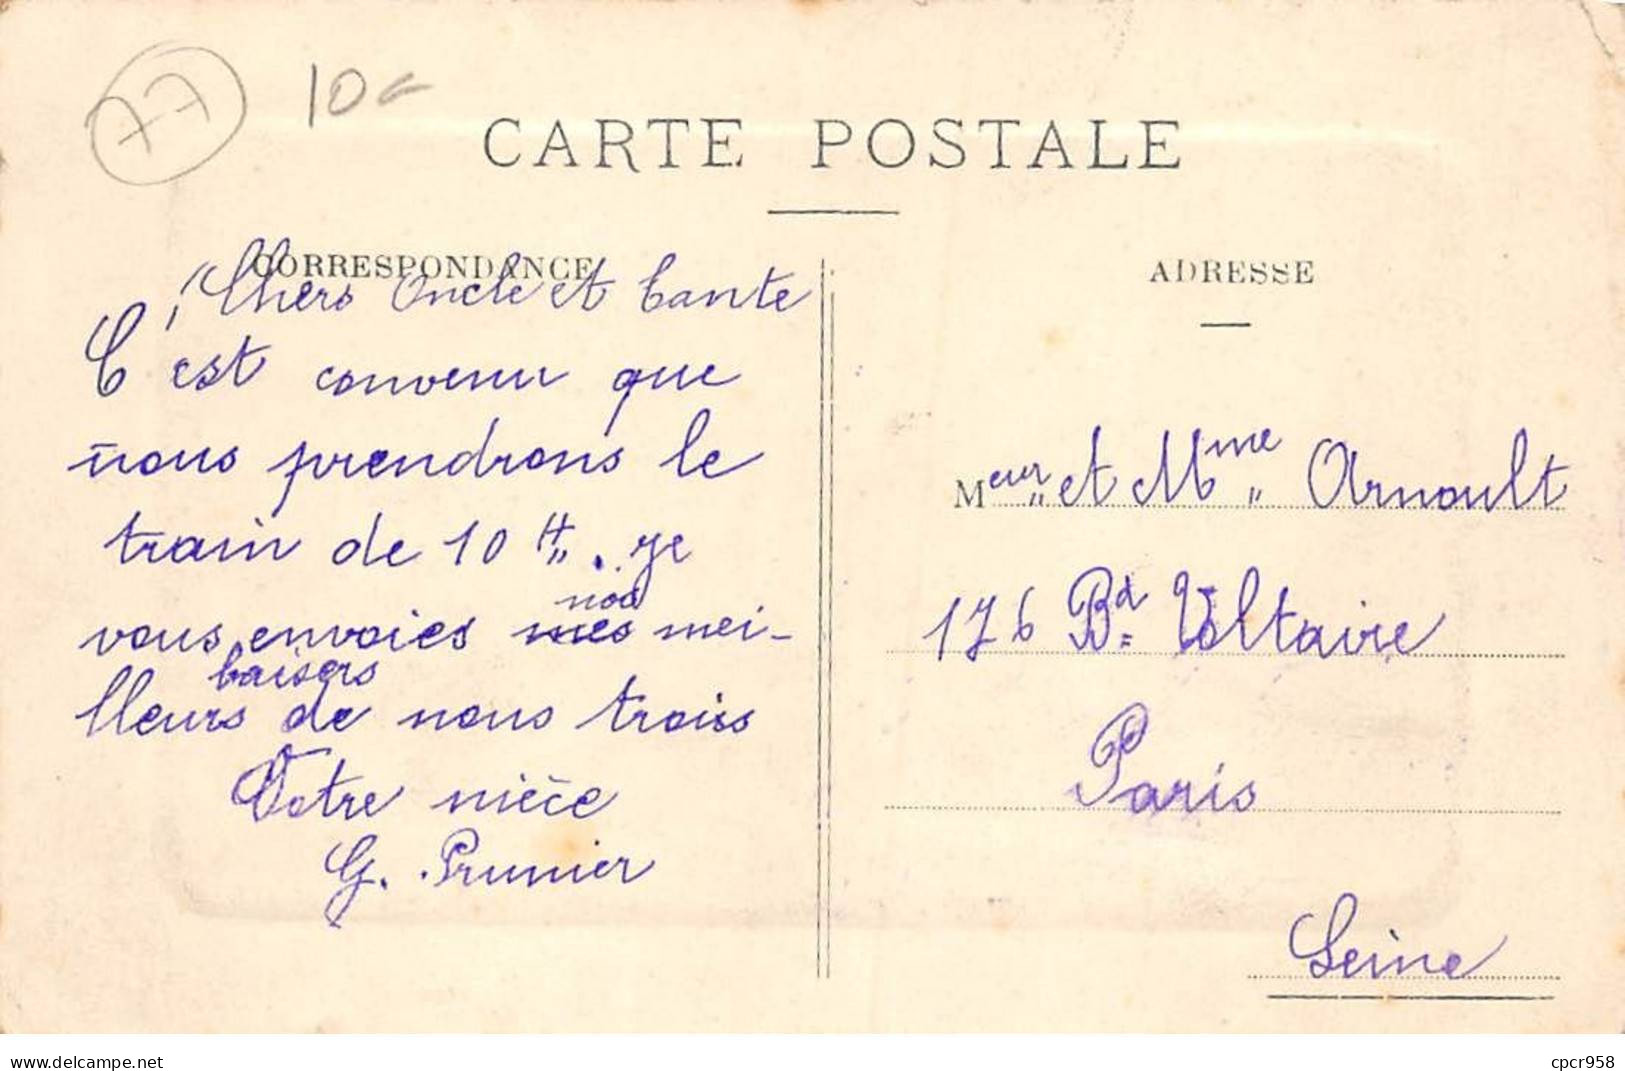 77
10€
CARTE POSTALE
CORRESPONDANCE
Chers Oncle et tante
C'est convenu que
nous prendrons le
train de 10 H. Je
nos
vous envoies mes mei-
baisers
lleurs de nous trois
Votre nièce
G. Prunier
ADRESSE
Meur et Mme Arnoult
176 Bd Voltaire
Paris
Seine
www.delcampe.net
cpcr958